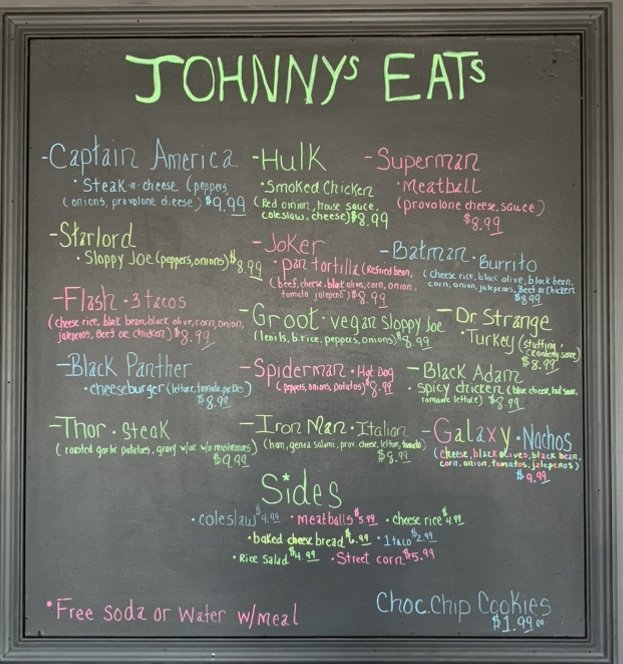 JOHNNYS EATS
-Captain America
• Steak-n-cheese (peppers
(onions, provolone cheese) $9.99
-Hulk
• Smoked Chicken
(Red onion, House sauce,
coleslaw, cheese) $8.99
-Superman
• Meatball
(provolone cheese, sauce)
$8.99
-Starlord
• Sloppy Joe (peppers, onions) $8.99
-Joker
• pan tortilla (Refried bean,
(beef, cheese, black olives, corn, onion,
tomato jalepeno) $8.99
-Batman • Burrito
(cheese rice, black olive, black bean,
corn, onion, jalepenos, Beef or Chicken
$8.99
-Flash • 3 tacos
(cheese rice, black bean, black olive, corn, onion,
jalepenos, Beef or chicken) $8.99
-Groot • vegan sloppy Joe
(lentils, b.rice, peppers, onions) $8.99
-Dr Strange
• Turkey (stuffing,
cranberry sauce)
$8.99
-Black Panther
• cheeseburger (lettuce, tomato, pickles)
$8.99
-Spiderman • Hot Dog
(peppers, onions, potatos) $8.99
-Black Adam
• spicy chicken (blue cheese, hot sauce,
romaine lettuce) $8.99
-Thor • Steak
(roasted garlic potatoes, gravy w/or w/o mushrooms)
$9.99
-Iron Man • Italian
(ham, genoa salami, prov. cheese, lettuce, tomato)
$8.99
-Galaxy • Nachos
(cheese, black olives, black bean,
corn, onion, tomatos, jalepenos)
$9.99
Sides
• coleslaw $4.99 • meatballs $5.99 • cheese rice $4.99
• baked cheese bread $6.99 • 1 taco $2.99
• Rice salad $4.99 • Street corn $5.99
• Free soda or water w/meal
Choc.Chip Cookies
$1.99